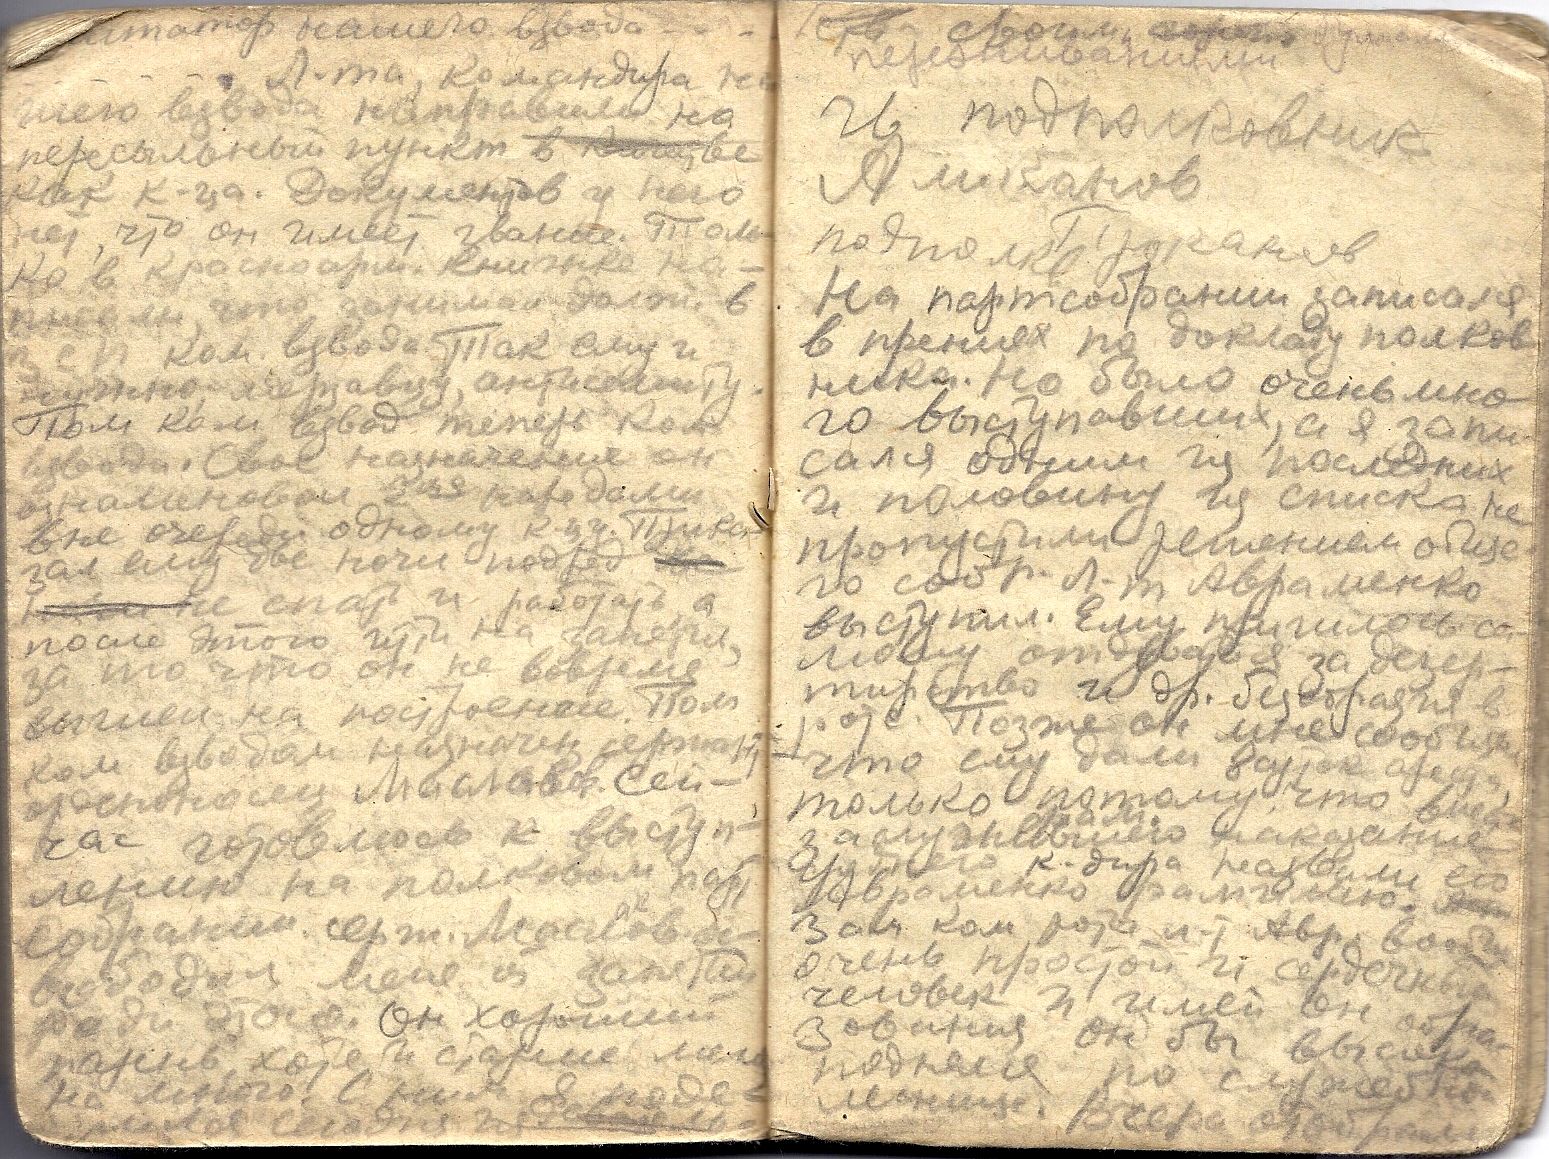 нашего взвода
Л-та, командира на
шего взвода направили на
пересыльный пункт в
как к-ца. Документов у него
нет, что он имеет звание. Толь
ко в красноарм. книжке на-
писали, что занимал должн. в
п с п ком. взвода. Так ему и
нужно мерзавцу, антисемиту.
Пом ком взвод теперь ком
взвода. Свое назначение он
ознаменовал нарядами
вне очереди одному к-цу. Прика-
зал ему две ночи подряд
не спать и работать а
после этого идти на занятия,
за то что он не вовремя
вышел на построение. Пом
ком взводом назначен сержант
орденоносец Маслов. Сей-
час готовлюсь к выступ-
лению на полковом парт
собрании. серж. Маслов ос-
вободил меня из занятий
ради этого. Он хороший
парень хотя и старше меня
на много. С ним я поде-
лился сегодня
своим
переживаниями
Из подполковник
Аликанов
подполк Труханов
На партсобрании записался
в прениях по докладу полков
ника. Но было очень мно-
го выступавших, а я запи-
сался одним из последних
и половину из списка не
пропустили решением обще-
го собр. Л-т Авраменко
выступил. Ему пришлось са-
мому отдуваться за дезер-
тирство и др. безобразия в
роте. Позже он мне сообщил
что ему дали арест,
только потому что
заслужившего наказание
другого к-дира назвали его
Авраменко фамилию.
Зам ком роты л-т Авр. вообще
очень простой и сердечный
человек и имей он обра-
зования он бы высоко
поднялся по служебно
лестнице. Вчера отобрали